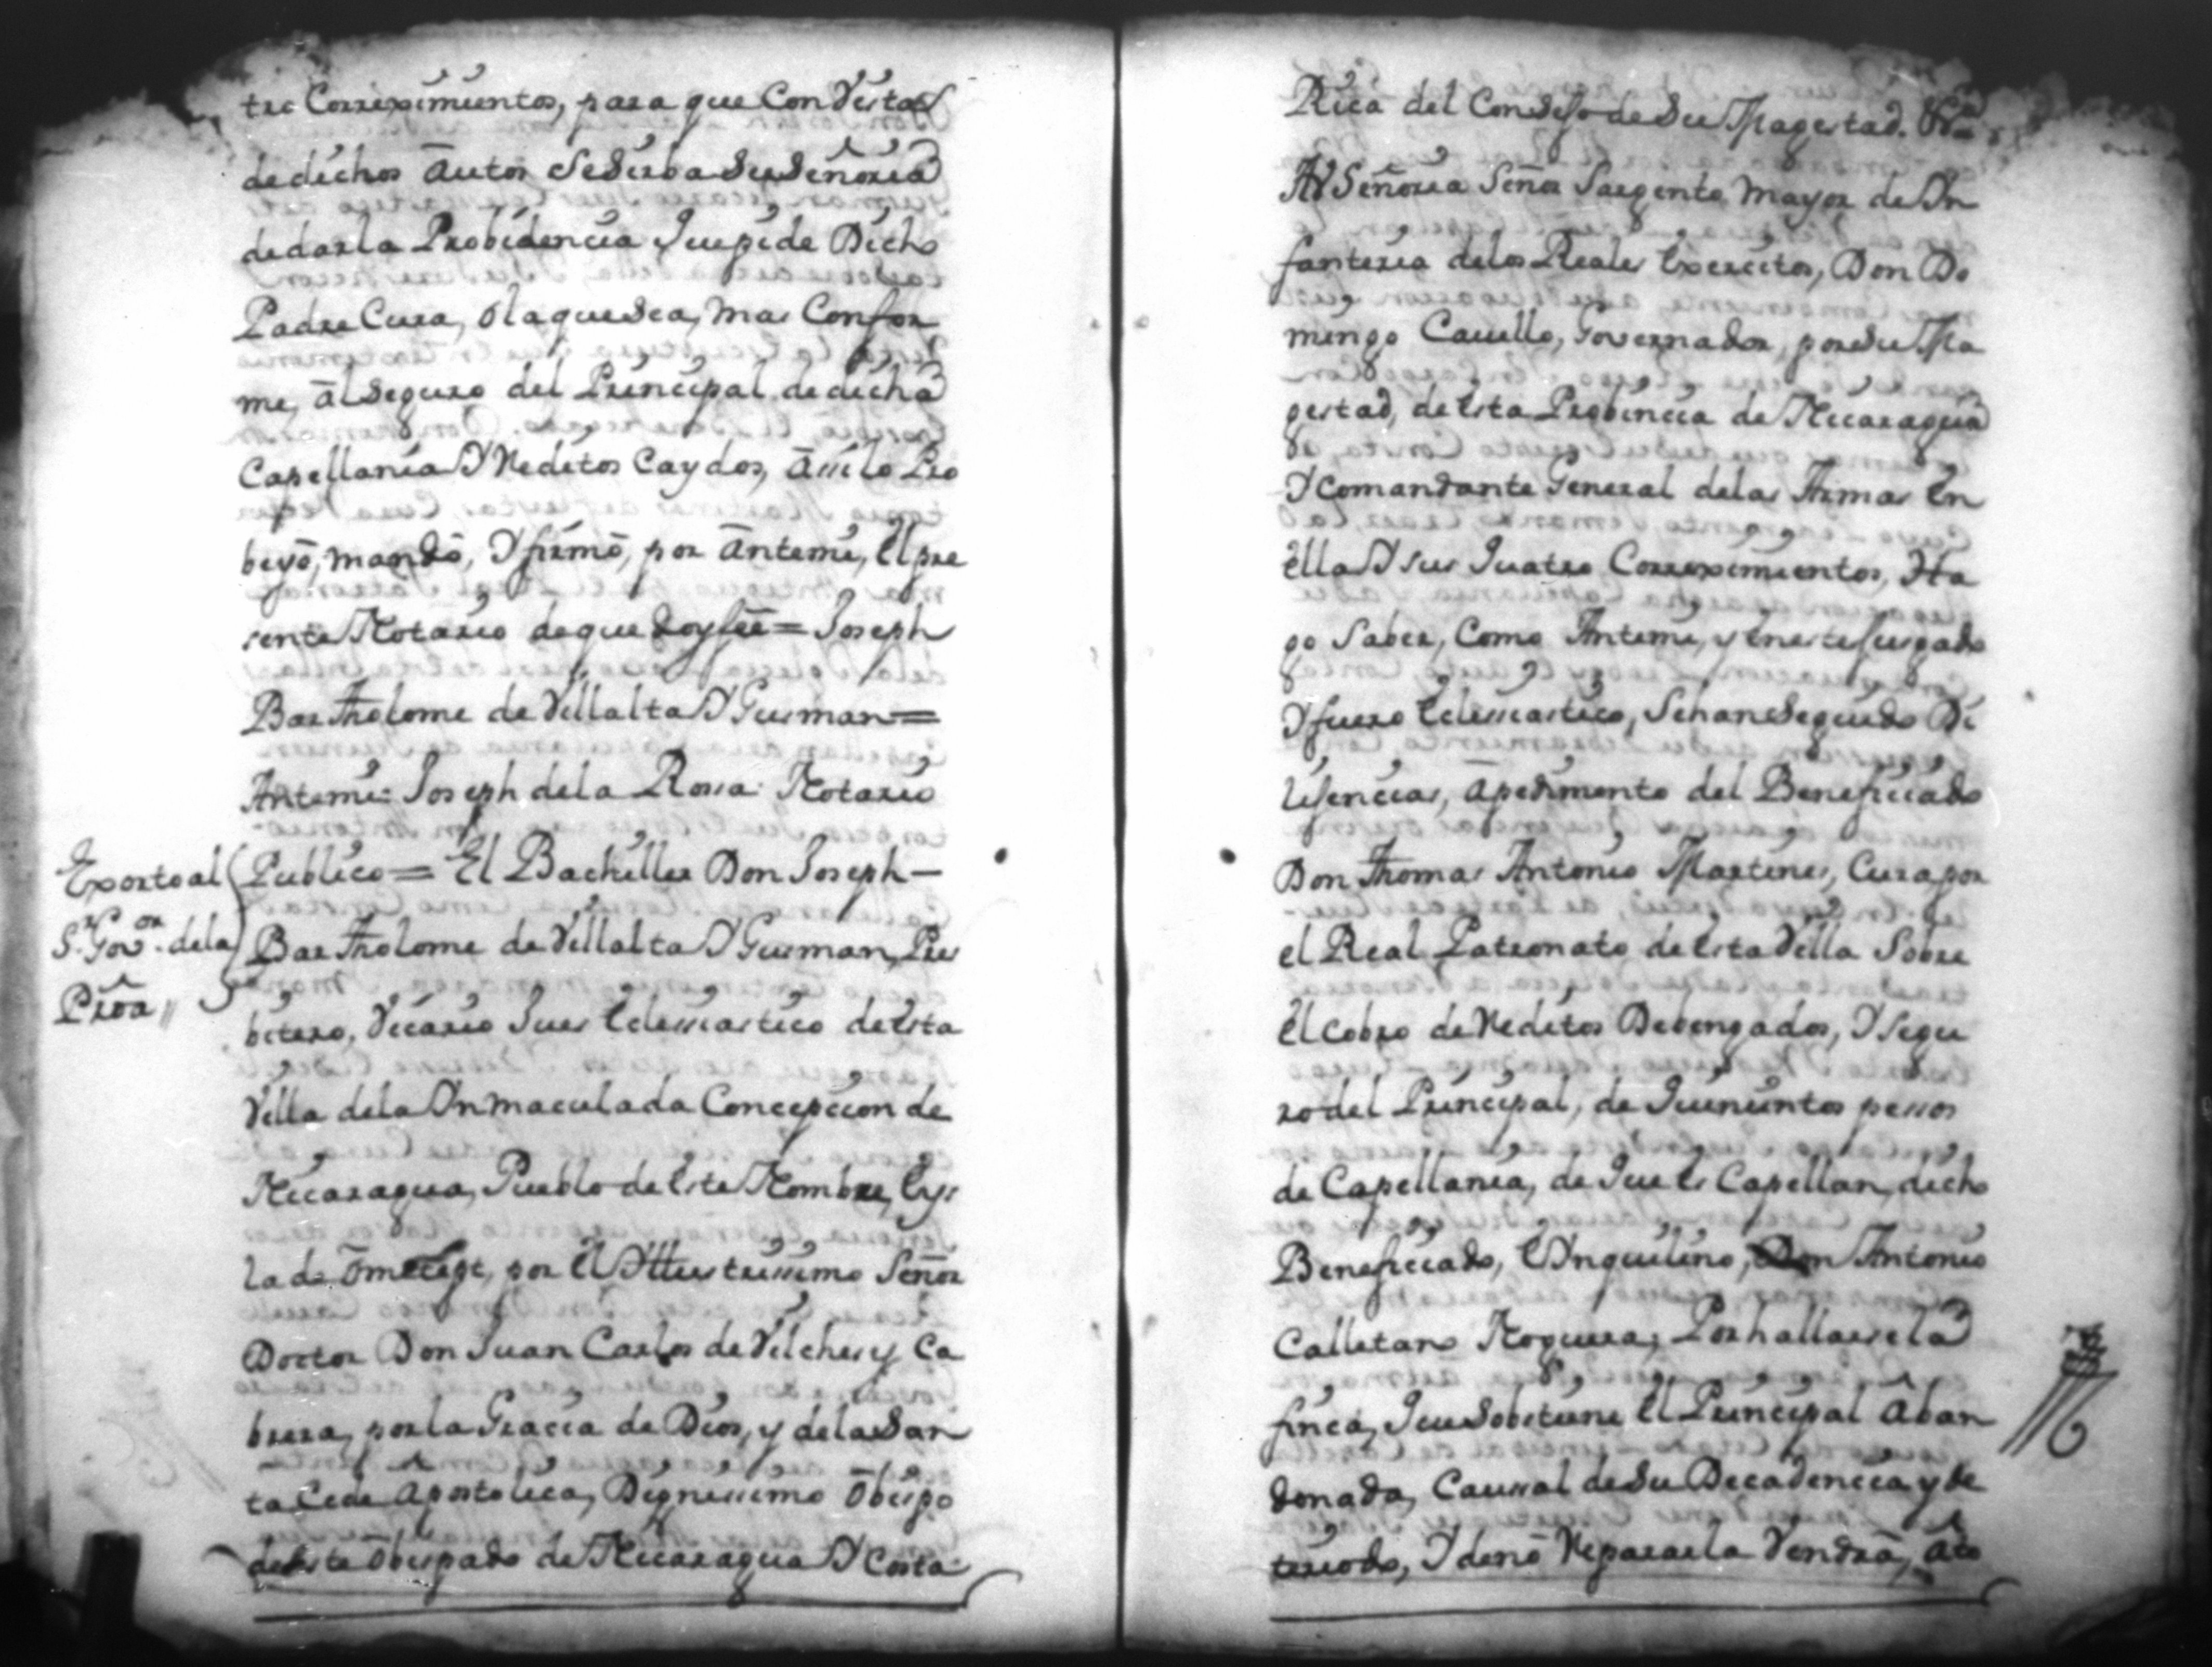 tro Correximientos, para que Con Vista
de dichos autos se Sirba Su Señoria
de dar la Probidencia que pide Dicho
Padre Cura, o la que sea, mas Confor
me, al Seguro del Principal de dicha
Capellania Y Reditos Caydos, assi lo Pro
beyo, mando, Y firmo, por antemi, El pre
sente Notario de que doy fee = Joseph
Bartholome de Villalta Y Gusman =
Antemi: Joseph de la Rossa: Notario
Publico = El Bachiller Don Joseph –
Exorto al
Sr. Govor. dela
Proa //
Bartholome de Villalta Y Gusman, Pres
bitero, Vicario Jues Eclessiastico de Esta
Villa dela Inmaculada Concepcion de
Nicaragua, Pueblo de Este Nombre, Eys
la de Ometepe, por El Illustrissimo Señor
Doctor Don Juan Carlos de Vilches y Ca
brera, por la Gracia de Dios, y de la San
ta Cede Apostolica, Dignissimo Obispo
de Este Obispado de Nicaragua Y Costa
Rica del Consejo de Su Magestad.
A V Señoria Señor Sargento Mayor de In
fanteria delos Reales Exercitos, Don Do
mingo Cavello, Governador, por Su Ma
gestad, de Esta Probincia de Nicaragua
Y Comandante General delas Armas En
Ella Y sus Quatro Correximientos, Ha
go Saber, Como Antemi, y En este Jusgado
Y fuero Eclessiastico, Se han Seguido Di
lijencias, apedimento del Beneficiado
Don Thomas Antonio Martines, Cura por
el Real Patronato de Esta Villa Sobre
El cobro de Reditos Debengados, Y segu
ro del Principal, de Quinientos pessos
de Capellania, de que Es Capellan, dicho
Beneficiado, E Inquilino, Don Antonio
Calletano Noguera, Por hallarse la
finca, que Sobstiene El Principal Aban
donada, Caussal de Su Decadencia y de
teriodo, Y de no Repararla Vendra,